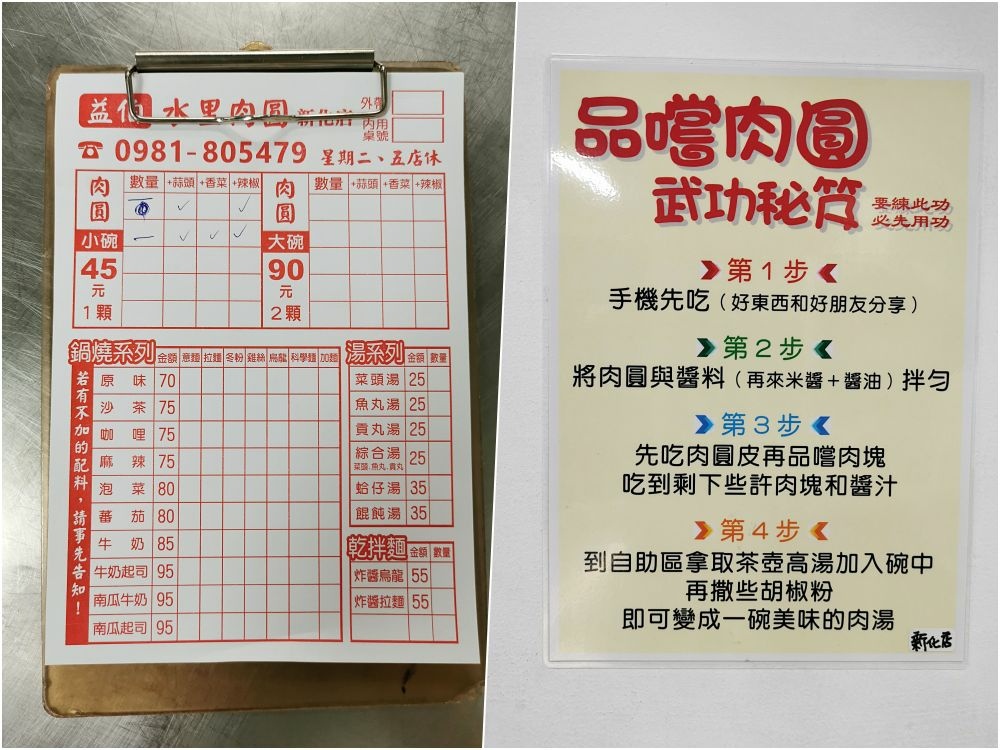 益伯 水里肉圓 新化店
外帶
內用
桌號
☎ 0981-805479 星期二、五店休
肉圓 數量 +蒜頭 +香菜 +辣椒
小碗
45
元
1顆
肉圓 數量 +蒜頭 +香菜 +辣椒
大碗
90
元
2顆
鍋燒系列 金額 意麵 拉麵 冬粉 雞絲 烏龍 科學麵 加麵
若有不加的配料，請事先告知！
原味 70
沙茶 75
咖哩 75
麻辣 75
泡菜 80
蕃茄 80
牛奶 85
牛奶起司 95
南瓜牛奶 95
南瓜起司 95
湯系列 金額 數量
菜頭湯 25
魚丸湯 25
貢丸湯 25
綜合湯 25
菜頭、魚丸、貢丸
蛤仔湯 35
餛飩湯 35
乾拌麵 金額 數量
炸醬烏龍 55
炸醬拉麵 55
品嚐肉圓
武功秘笈
要練此功
必先用功
第1步
手機先吃（好東西和好朋友分享）
第2步
將肉圓與醬料（再來米醬+醬油）拌勻
第3步
先吃肉圓皮再品嚐肉塊
吃到剩下些許肉塊和醬汁
第4步
到自助區拿取茶壺高湯加入碗中
再撒些胡椒粉
即可變成一碗美味的肉湯
新化店